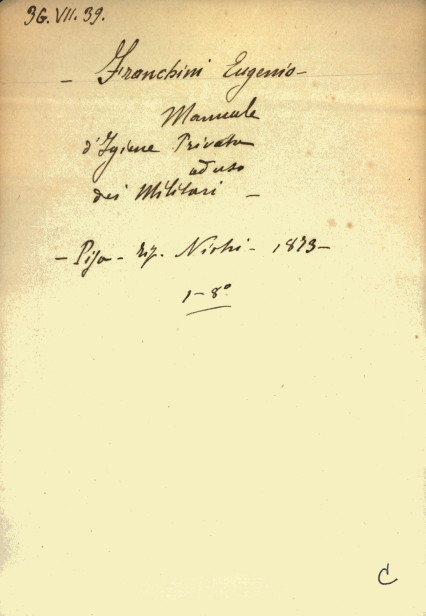 36. VII. 39.
– Franchini Eugenio –
Manuale
d'Igiene Privata
ad uso
dei Militari –
– Pisa – tip. Nistri – 1873 –
1 – 8º
C